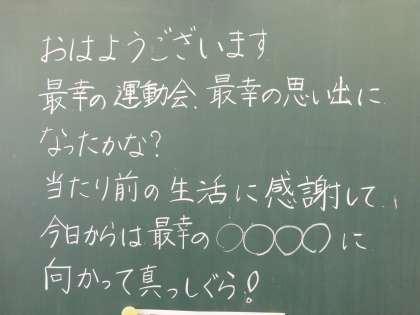 おはようございます
最幸の運動会、最幸の思い出に
なったかな?
当たり前の生活に感謝して、
今日からは最幸の○○○○に
向かって真っしぐら!